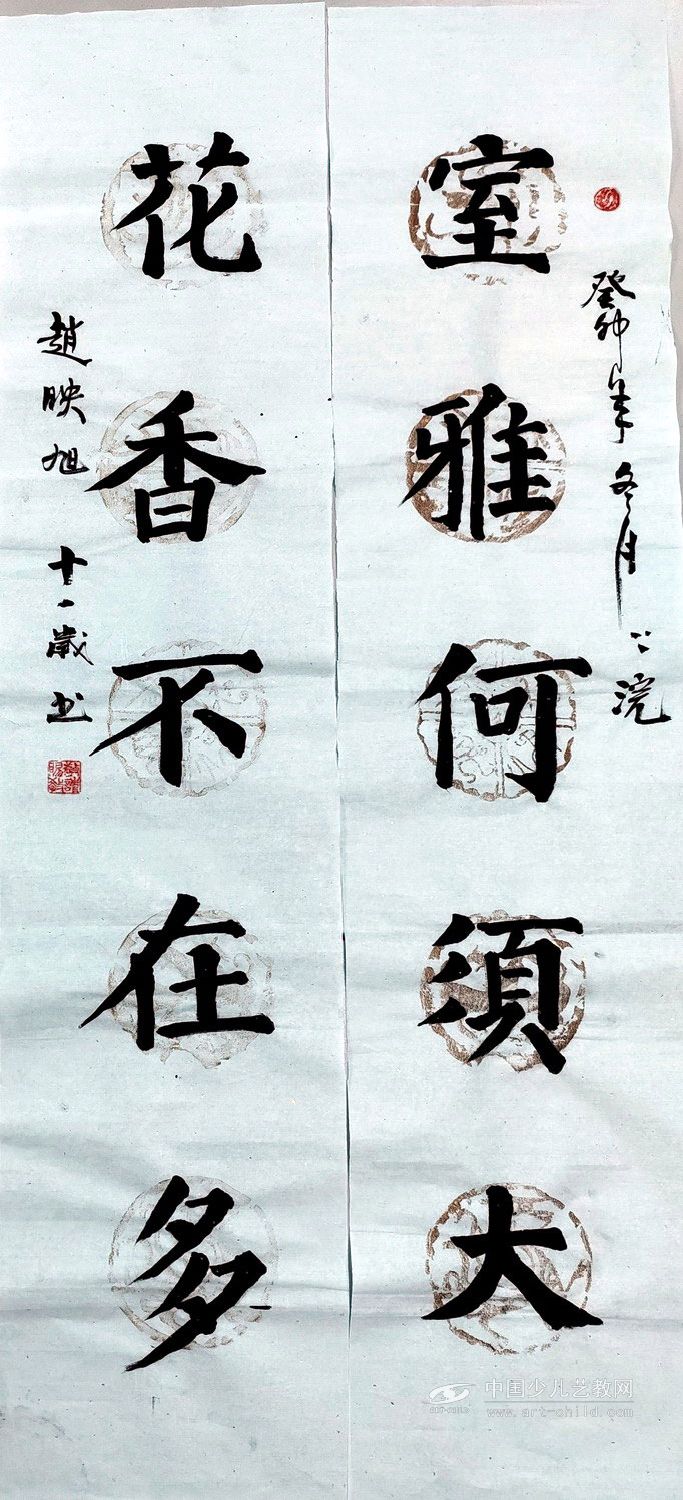 癸卯年冬月
室雅何須大
花香不在多
趙映旭 十一歲 书
中国少儿艺教网
www.art-child.com